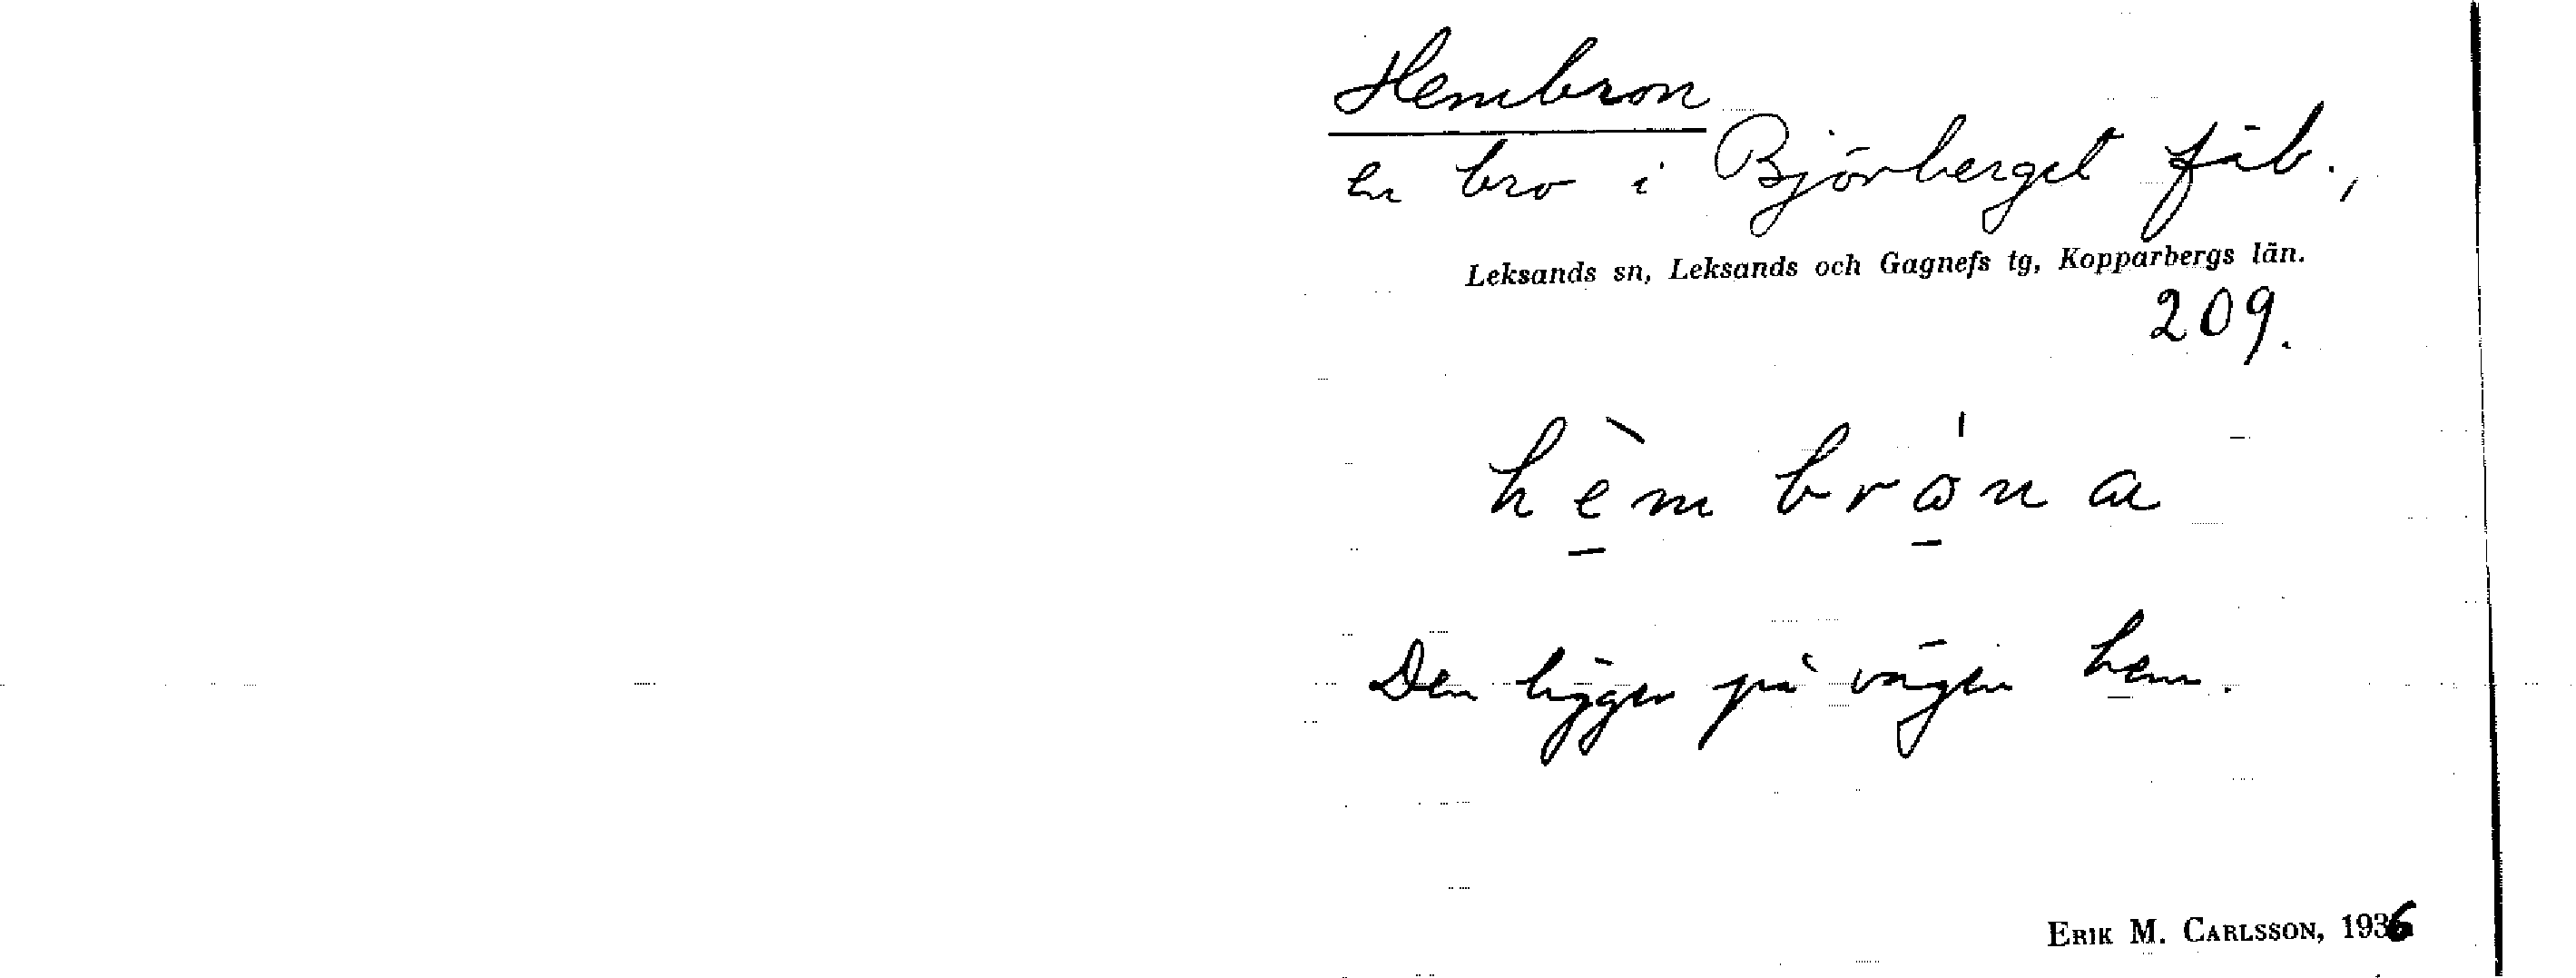 Hembron
en bro i Björberget fäb.,
Leksands sn, Leksands och Gagnefs tg, Kopparbergs län.
209.
hèmbrώna
Den ligger på vägen hem.
ERIK M. CARLSSON, 1936